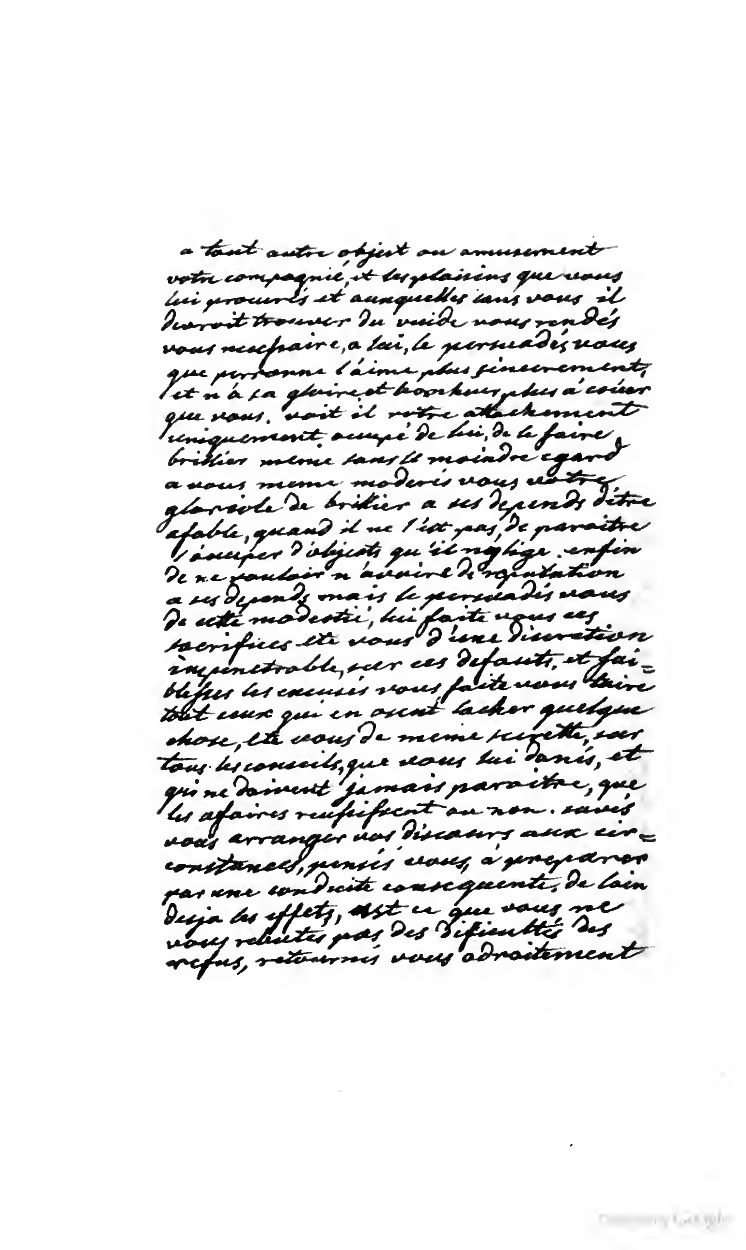 a tout autre objest ou amusement
votre compagnié, et les plaisirs que vous
lui procurés et aunquelles sans vous il
devroit trouver du vuide vous rendés
vous necessaire, a lui, le persuadés vous
que personne l'aime plus sincerement,
et n'á sa gloire et bonheur plus á coeur
que vous. voit il votre attachement
uniquement occupé de lui, de le faire
brillier meme sans le moindre egard
a vous meme moderés vous votre
gloriole de brillier a ses depends d'étre
afable, quand il ne l'est pas, de paraitre
l'ocuper d'objests qu'il neglige. enfin
de ne vouloir n'avoire de reputation
a ses depends mais le persuadés vous
de cette modestié, lui faite vous ces
sacrifices ete vous d'une discretion
impenetrable, sur ces defauts, et fai=
blesses les excusés vous faite vous taire
tout ceux qui en osent lacher quelque
chose, ete vous de meme secrette, sur
tous les conseils, que vous lui donés, et
qui ne doivent jamais paroitre, que
les afaires reussissent ou non. savés
vous arranger vos discours aux cir=
constances, pensés vous, á preparer
par une conduite consequente, de loin
desja les effets, est ce que vous ne
vous rebutes pas des dificultés des
refus, retournés vous adroitement
Google